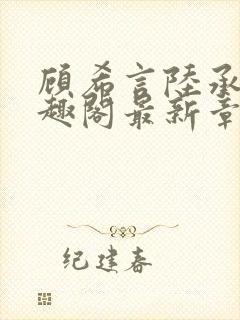 顾希言陆承
趣阁最新章
纪建春